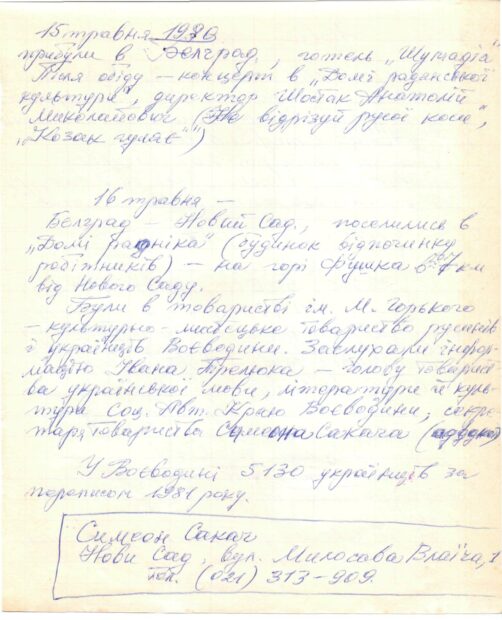 15 травня 1986
прибули в Белград, готель „Шумадія"
Після обіду – концерт в „Домі радянської
культури", директор Шостак Анатолій
Миколайович („Не відрізуй русої коси",
„Козак гуляє")
16 травня –
Белград – Новий Сад, поселились в
„Домі радніка" (будинок відпочинку
робітників) – на горі Фрушка 6-7 км
від Нового Саду.
Були в товаристві ім. М. Горького
– культурно-мистецьке товариство русинів
і українців Воєводини. Заслухали інфор-
мацію Івана – голову товарист-
ва української мови, літератури й куль-
тури Соц. Авт. Краю Воєводини, секре-
таря товариства Симеона Сакача
У Воєводині 5130 українців за
переписом 1981 року.
Симеон Сакач
Нови Сад, вул. Милосава Влаїча, 1
тел. (021) 313-909